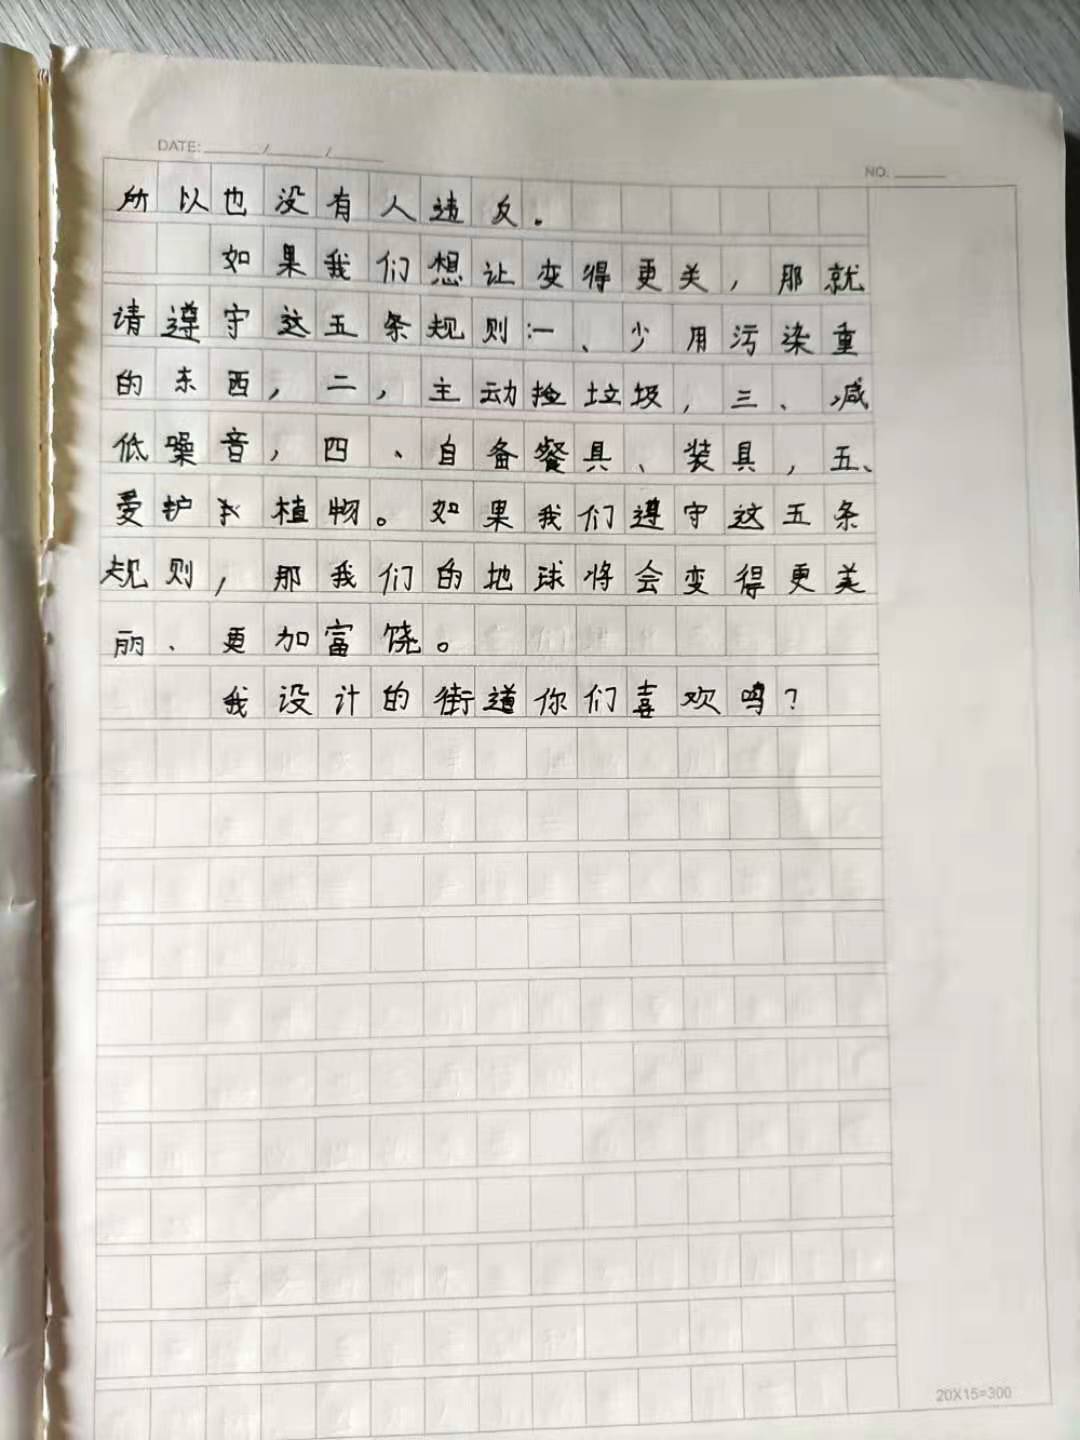 DATE: ____/____/____
NO. ____
所以也没有人违反。
如果我们想让变得更美，那就
请遵守这五条规则:一、少用污染重
的东西，二，主动捡垃圾，三、减
低噪音，四、自备餐具、装具，五、
爱护植物。如果我们遵守这五条
规则，那我们的地球将会变得更美
丽、更加富饶。
我设计的街道你们喜欢吗？
20X15=300